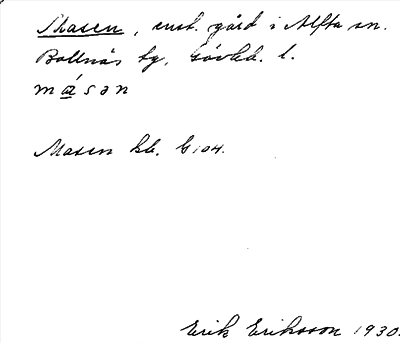 Masen, enst. gård i Alfta sn.
Bollnäs tg, Gävleb. l.
mά̲sən
Masen kb. G:104.
Erik Eriksson 1930.